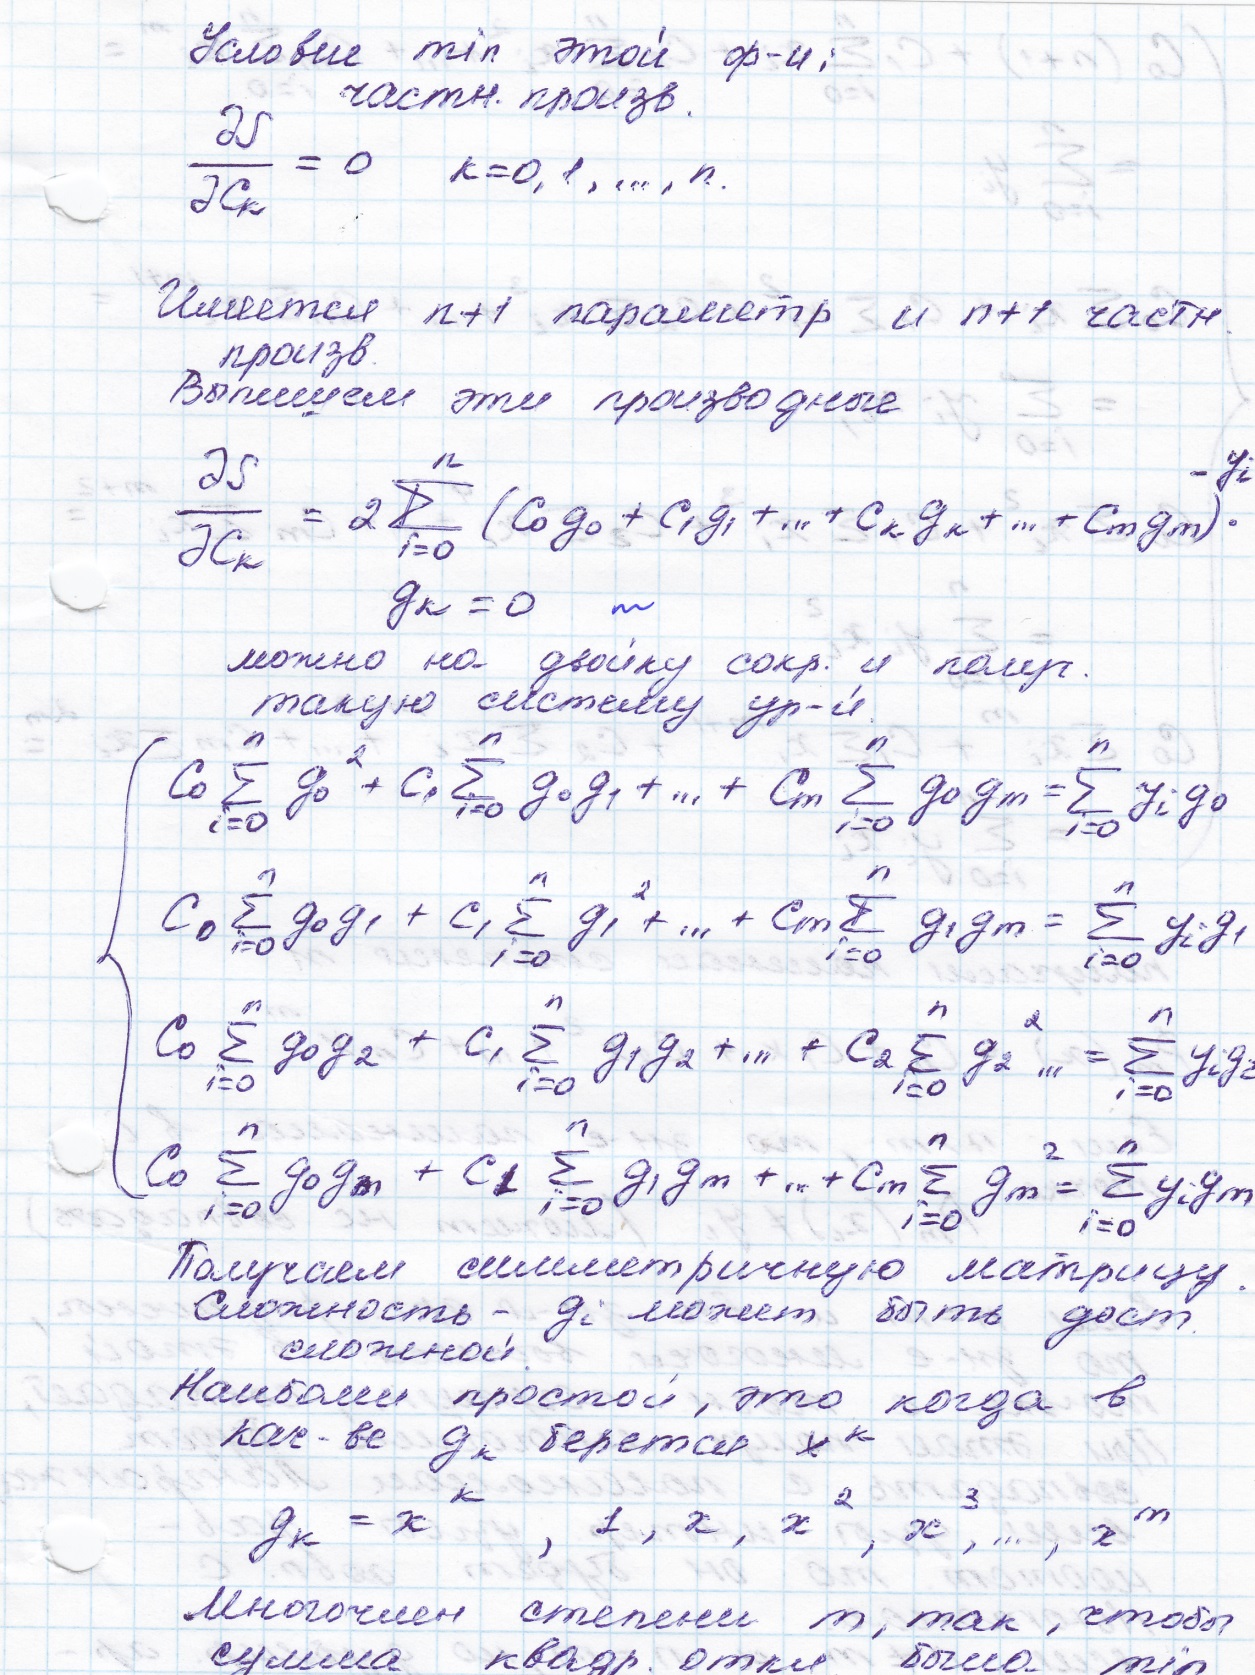 Условие min этой ф-и:
частн. произв.
∂S/∂C_k = 0    k=0,1,...,n.
Имеется n+1 параметр и n+1 частн.
произв.
Выпишем эти производные
∂S/∂C_k = 2 ∑_{i=0}^{n} (C_0 g_0 + C_1 g_1 + ... + C_k g_k + ... + C_m g_m - y_i) ·
g_k = 0   m
можно на двойку сокр. и получ.
такую систему ур-й.
C_0 ∑_{i=0}^{n} g_0^2 + C_1 ∑_{i=0}^{n} g_0 g_1 + ... + C_m ∑_{i=0}^{n} g_0 g_m = ∑_{i=0}^{n} y_i g_0
C_0 ∑_{i=0}^{n} g_0 g_1 + C_1 ∑_{i=0}^{n} g_1^2 + ... + C_m ∑_{i=0}^{n} g_1 g_m = ∑_{i=0}^{n} y_i g_1
C_0 ∑_{i=0}^{n} g_0 g_2 + C_1 ∑_{i=0}^{n} g_1 g_2 + ... + C_2 ∑_{i=0}^{n} g_2^2 ... = ∑_{i=0}^{n} y_i g_2
C_0 ∑_{i=0}^{n} g_0 g_m + C_1 ∑_{i=0}^{n} g_1 g_m + ... + C_m ∑_{i=0}^{n} g_m^2 = ∑_{i=0}^{n} y_i g_m
Получаем симметричную матрицу.
Сложность - g_i может быть дост.
сложной.
Наиболи простой, это когда в
кач-ве g_k берется x^k
g_k = x^k, 1, x, x^2, x^3, ..., x^m
Многочлен степени m, так, чтобы
сумма квадр. откл была min